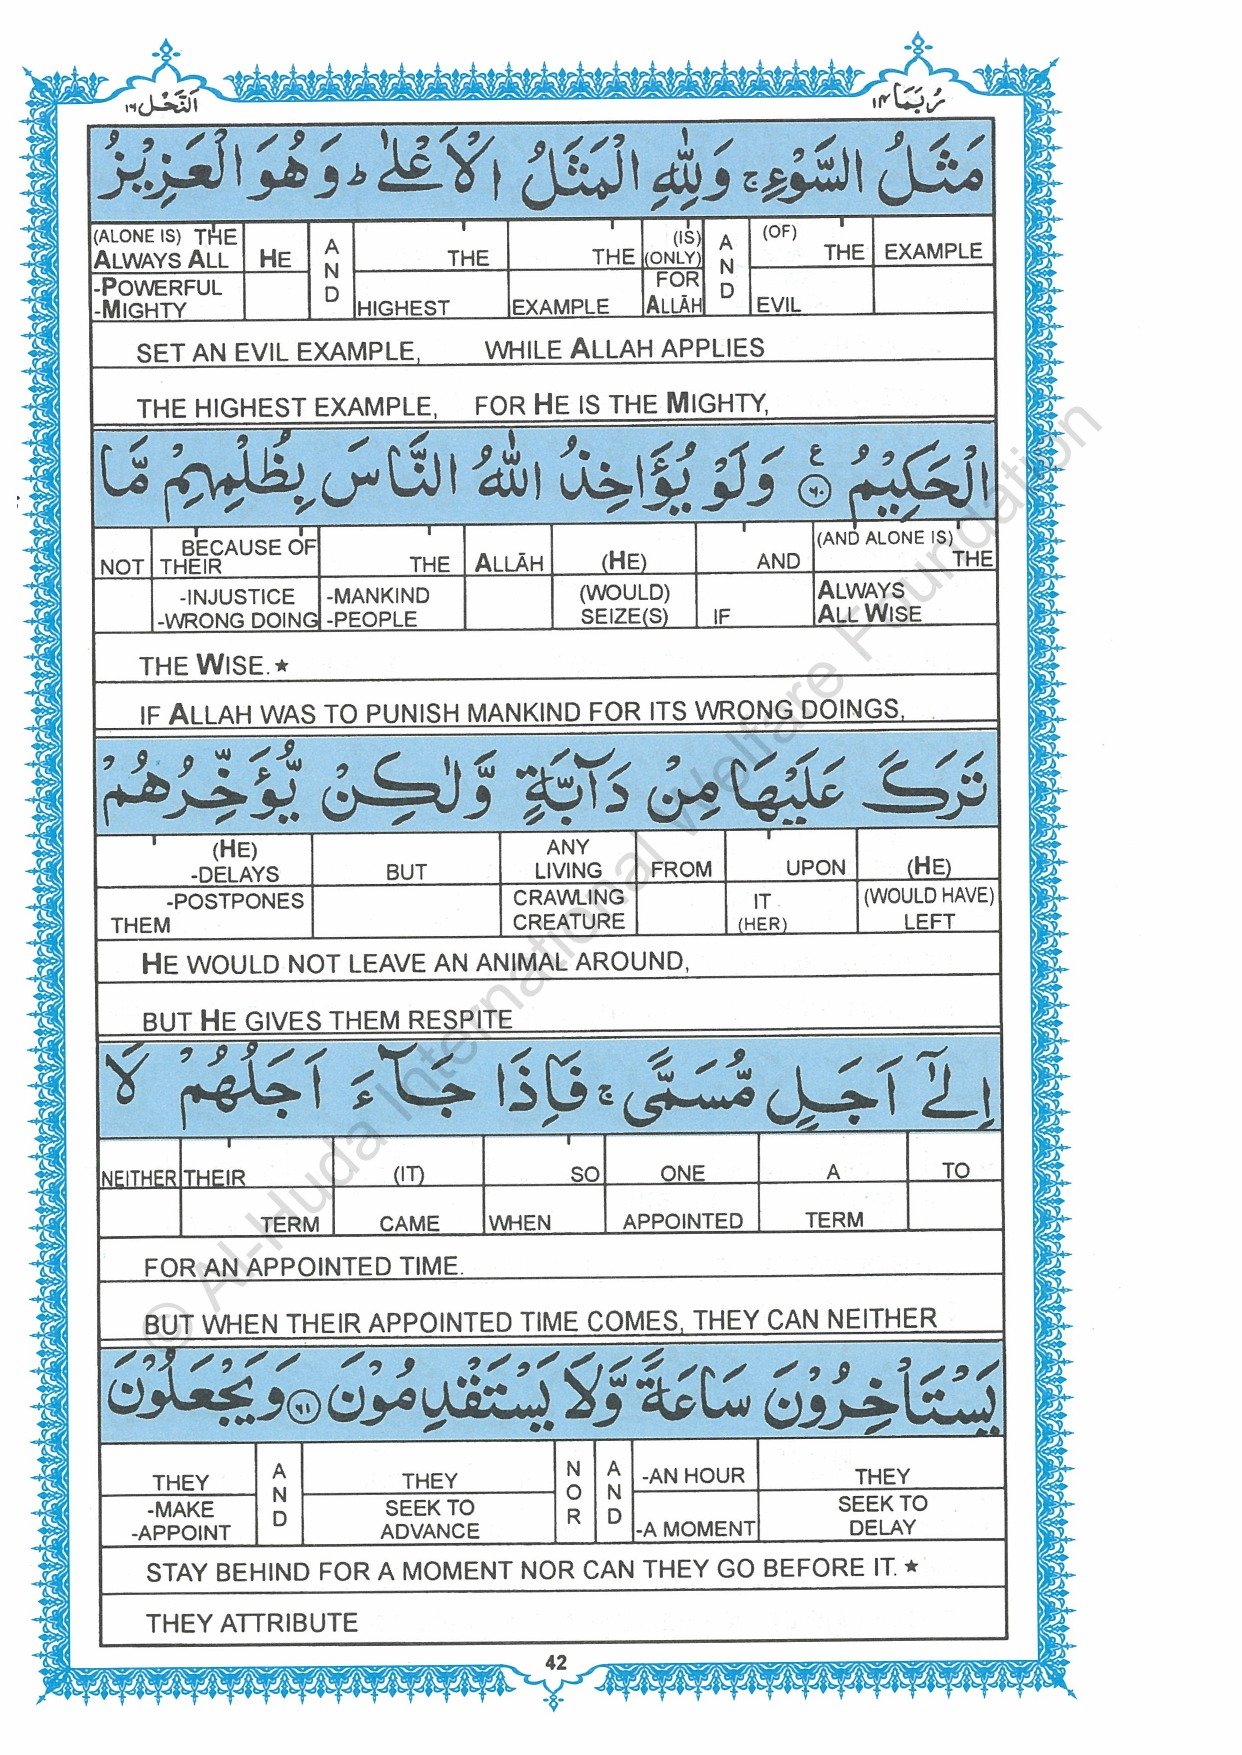 رُبَمَا ١٤
اَلنَّحْل ١٦
مَثَلُ السَّوْءِ ۚ وَلِلّٰهِ الْمَثَلُ الْاَعْلٰى ؕ وَهُوَ الْعَزِيْزُ
(ALONE IS) THE HE AND THE THE (IS) AND (OF) THE EXAMPLE
ALWAYS ALL (ONLY)
-POWERFUL FOR
-MIGHTY HIGHEST EXAMPLE ALLĀH EVIL
SET AN EVIL EXAMPLE, WHILE ALLAH APPLIES
THE HIGHEST EXAMPLE, FOR HE IS THE MIGHTY,
الْحَكِيْمُ ۧ ٦٠ وَلَوْ يُؤَاخِذُ اللّٰهُ النَّاسَ بِظُلْمِهِمْ مَّا
BECAUSE OF (AND ALONE IS)
NOT THEIR THE ALLĀH (HE) AND THE
-INJUSTICE -MANKIND (WOULD) ALWAYS
-WRONG DOING -PEOPLE SEIZE(S) IF ALL WISE
THE WISE.★
IF ALLAH WAS TO PUNISH MANKIND FOR ITS WRONG DOINGS,
تَرَكَ عَلَيْهَا مِنْ دَآبَّةٍ وَّلٰكِنْ يُّؤَخِّرُهُمْ
(HE) ANY
-DELAYS BUT LIVING FROM UPON (HE)
-POSTPONES CRAWLING IT (WOULD HAVE)
THEM CREATURE (HER) LEFT
HE WOULD NOT LEAVE AN ANIMAL AROUND,
BUT HE GIVES THEM RESPITE
اِلٰٓى اَجَلٍ مُّسَمًّى ۚ فَاِذَا جَآءَ اَجَلُهُمْ لَا
NEITHER THEIR (IT) SO ONE A TO
TERM CAME WHEN APPOINTED TERM
FOR AN APPOINTED TIME.
BUT WHEN THEIR APPOINTED TIME COMES, THEY CAN NEITHER
يَسْتَاْخِرُوْنَ سَاعَةً وَّلَا يَسْتَقْدِمُوْنَ ٦١ وَيَجْعَلُوْنَ
THEY AND THEY NOR AND -AN HOUR THEY
-MAKE SEEK TO SEEK TO
-APPOINT ADVANCE -A MOMENT DELAY
STAY BEHIND FOR A MOMENT NOR CAN THEY GO BEFORE IT.★
THEY ATTRIBUTE
42
© Al-Huda International Welfare Foundation